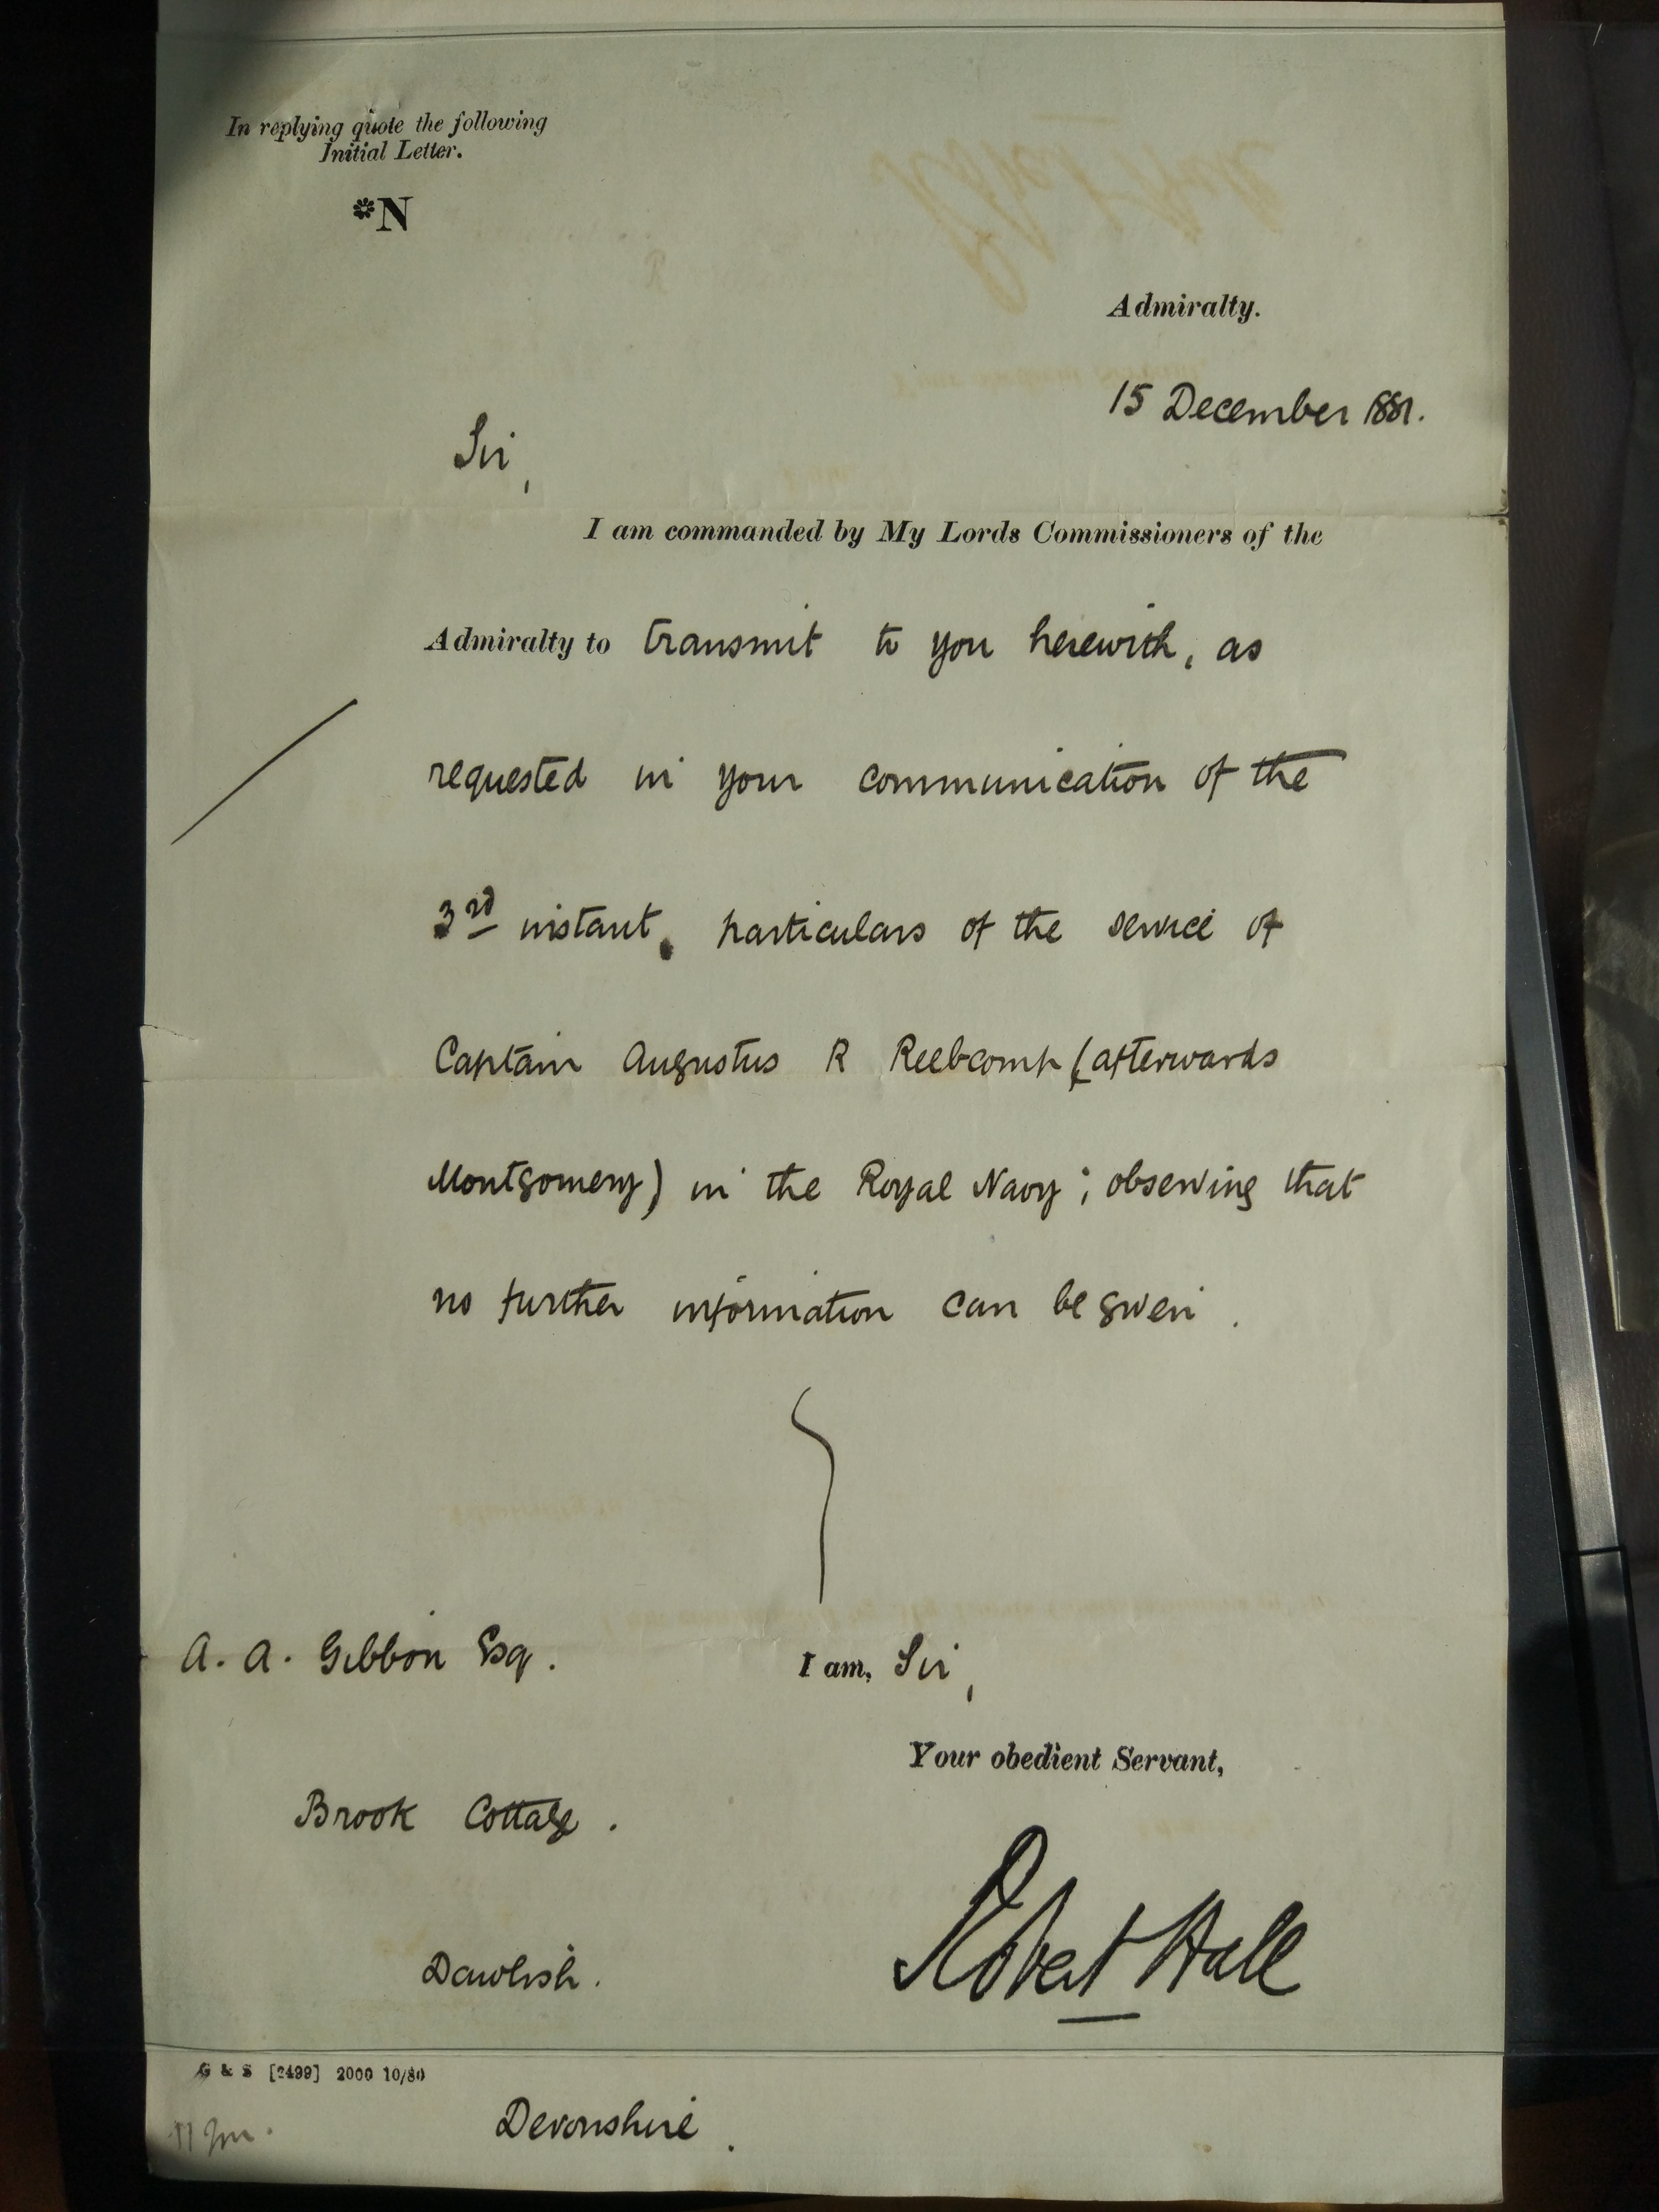 In replying quote the following
Initial Letter.
*N
Admiralty.
15 December 1881.
Sir,
I am commanded by My Lords Commissioners of the
Admiralty to transmit to you herewith, as
requested in your communication of the
3rd instant, particulars of the service of
Captain Augustus R Reebcomp (afterwards
Montgomery) in the Royal Navy; observing that
no further information can be given.
A. A. Gibbon Esq.
I am, Sir,
Your obedient Servant,
Brook Cottage.
Robert Hall
Dawlish.
G & S [2499] 2000 10/80
Devonshire.